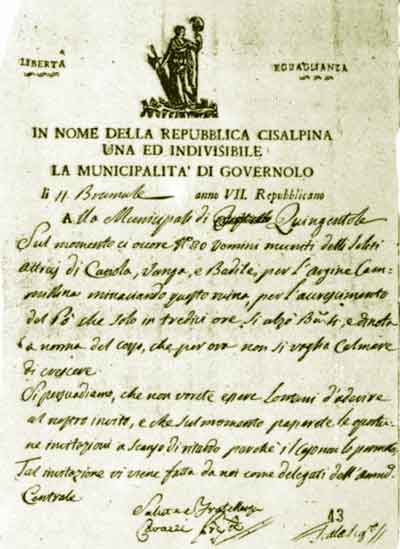 LIBERTÁ
EGUAGLIANZA
IN NOME DELLA REPUBBLICA CISALPINA
UNA ED INDIVISIBILE
LA MUNICIPALITA' DI GOVERNOLO
li 11 Brumale anno VII. Repubblicano
Alla Municipalità di Quingentole
Sul momento ci occore N° 80 uomini muniti delli soliti
attrezj di Cariola, Vanga, e Badile, per l'argine Cam-
minaciando questo ruina, per l'acrescimento
del Pò che solo in tredici ore si alzò e dinota
la norma del corso, che per ora non si voglia Calmare
di crescere.
Si persuadiamo, che non vorete essere lontani d'aderire
al nostro invito, e che sul momento passarete le oportu-
ne invitazioni a scanso di ritardo perchè il caso non lo permete,
Tal invitazione vi viene fatta da noi come delegati dell'Ammi.
Centrale
Salute e Fratellanza
Cavazzi
13